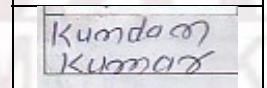 Kumdan
Kumar